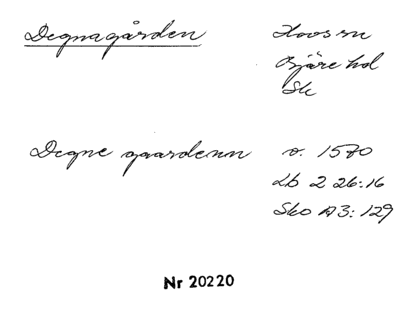 Degnagården
Hoos sn
Bjäre hd
Sk
Degne gaardenn
o. 1570
Lb 2 26:16
Sko A3: 129
Nr 20220